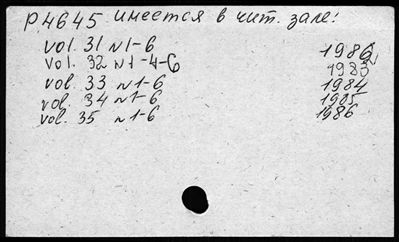 P.4645 имеется в чит. зале:
vol. 31 N 1-6 1986
vol. 32 N 1-4-6 1983
vol. 33 N 1-6 1984
vol. 34 N 1-6 1985
vol. 35 N 1-6 1986